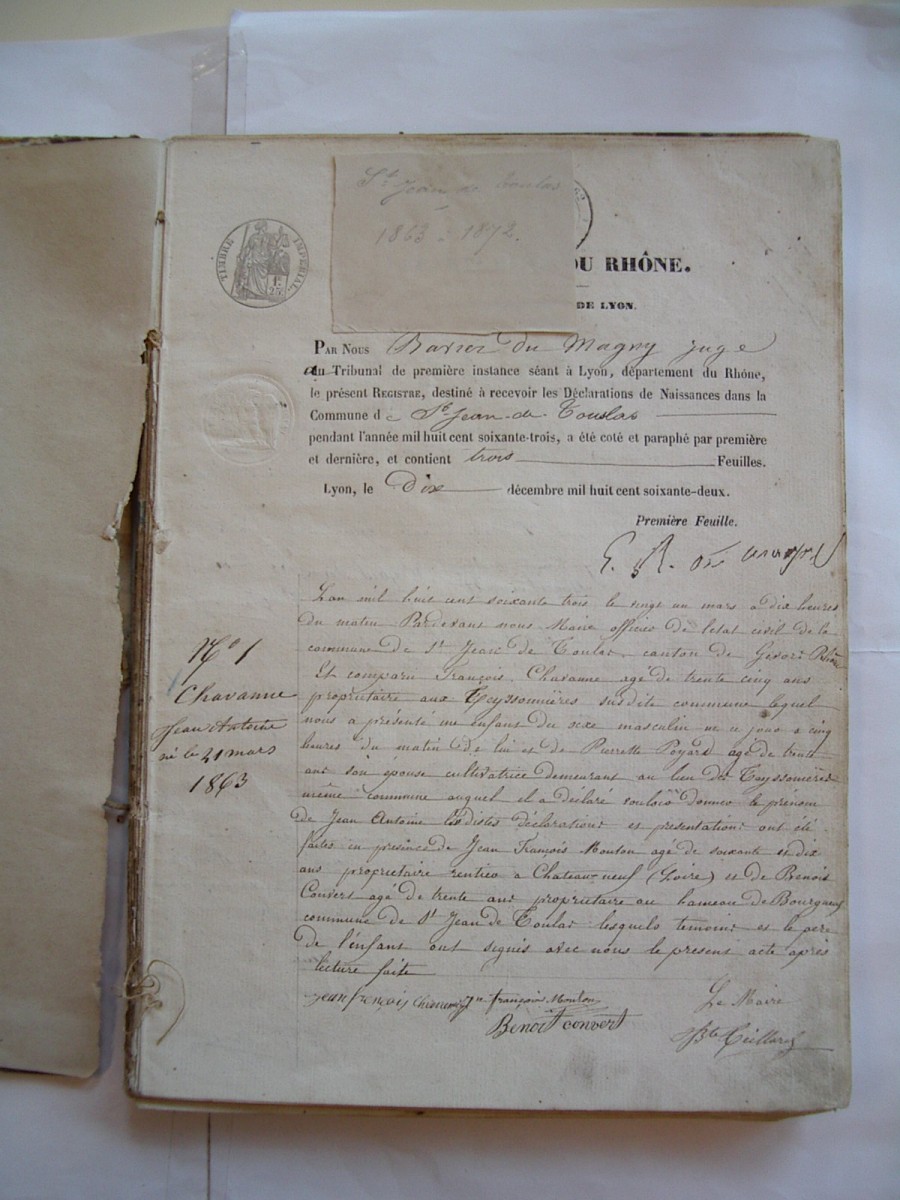 St Jean de Toulas
1863 - 1872.
TIMBRE IMPÉRIAL
DU RHÔNE.
DE LYON.
PAR NOUS Barrier du Magny juge
au Tribunal de première instance séant à Lyon, département du Rhône,
le présent REGISTRE, destiné à recevoir les Déclarations de Naissances dans la
Commune de St Jean de Touslas
pendant l'année mil huit cent soixante-trois, a été coté et paraphé par première
et dernière, et contient trois Feuilles.
Lyon, le Dix décembre mil huit cent soixante-deux.
Première Feuille.
No 1
Chavanne
Jean Antoine
né le 21 mars
1863
L'an mil huit cent soixante trois le vingt un mars a dix heures
du matin Pardevant nous Maire officier de l'etat civil de la
commune de St Jean de Toulas canton de Givors Rhône
Est comparu François Chavanne agé de trente cinq ans
propriétaire aux Teyssonnières susdite commune lequel
nous a présenté un enfant du sexe masculin né ce jour a cinq
heures du matin de lui et de Pierrette Poyard agé de trente
ans son épouse cultivatrice demeurant au lieu des Teyssonières
même commune auquel il a déclaré vouloir donner le prénom
de Jean Antoine lesdites déclarations et présentations ont été
faites en présence de Jean François Mouton agé de soixante et dix
ans propriétaire rentier a Chateauneuf (Loire) et de Benois
Convers agé de trente ans propriétaire au hameau de Bourgneuf
commune de St Jean de Toulas lesquels temoins et le père
de l'enfant ont signés avec nous le présent acte après
lecture faite
jean françois Mouton
Benoit convert
Le Maire